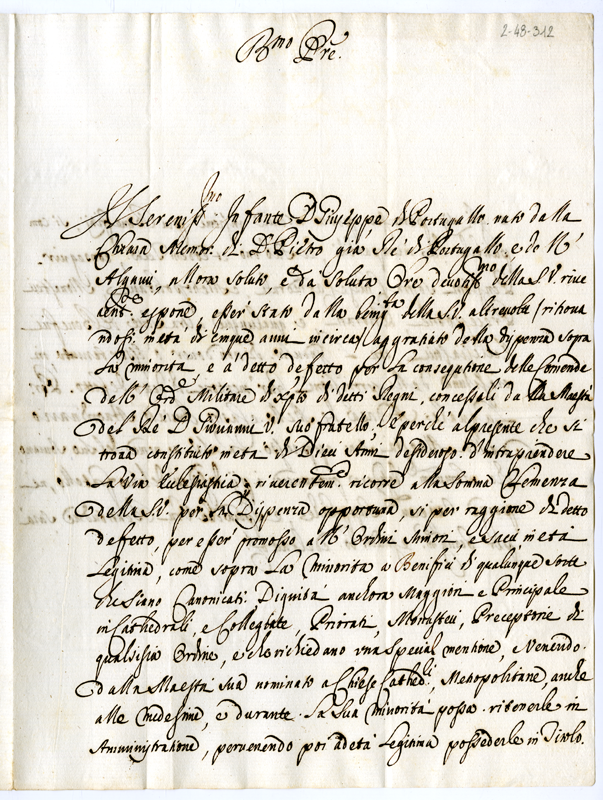 2-48-312
B.mo Pre.
Il Sereniss.mo Infante D. Giuseppe di Portugallo nato dalla
Chiara Memor. di D. Pietro già Rè di Portugallo, e de N.
Algarvi, allora soluto, e da soluta Ore devotiss.mo della S.V. rive
rent.e espone, esser stato dalla benig.tà della S.V. altrevolte (ritrova
ndosi in età di cinque anni incirca) aggratiato della dispenza sopra
la minorità, e a detto defetto per la consegutione delle Comende
dell' Ord.e Militare di Xpto di detti Regni, concessali da la Maestà
del Rè D. Giovanni V. suo fratello, e perche al presente che si
trova constituto in età di Dieci Anni desideroso d'intraprendere
la via Eclesiastica, riverentem.te ricorre alla somma Clemenza
della S.V. per la Dispenza opportuna, si per raggione di detto
defetto, per esser promosso a N. Ordini Minori, e sacri in età
legitima, come sopra la minorità a Benifici di qualunque sorte
che siano Canonicati. Dignità anchora Maggiori e Principale
in Cathedrali, e Collegiate, Priorati, Monasteri, Preceptorie di
qualsisia Ordine, e che richiedano una special mentione, e Venendo
dalla Maestà sua nominato a Chiese Cathed.li, Metropolitane, anche
alle medesime, e durante la sua minorità possa ritenerle in
Amministratione, pervenendo poi ad età legitima possederle in Titolo.